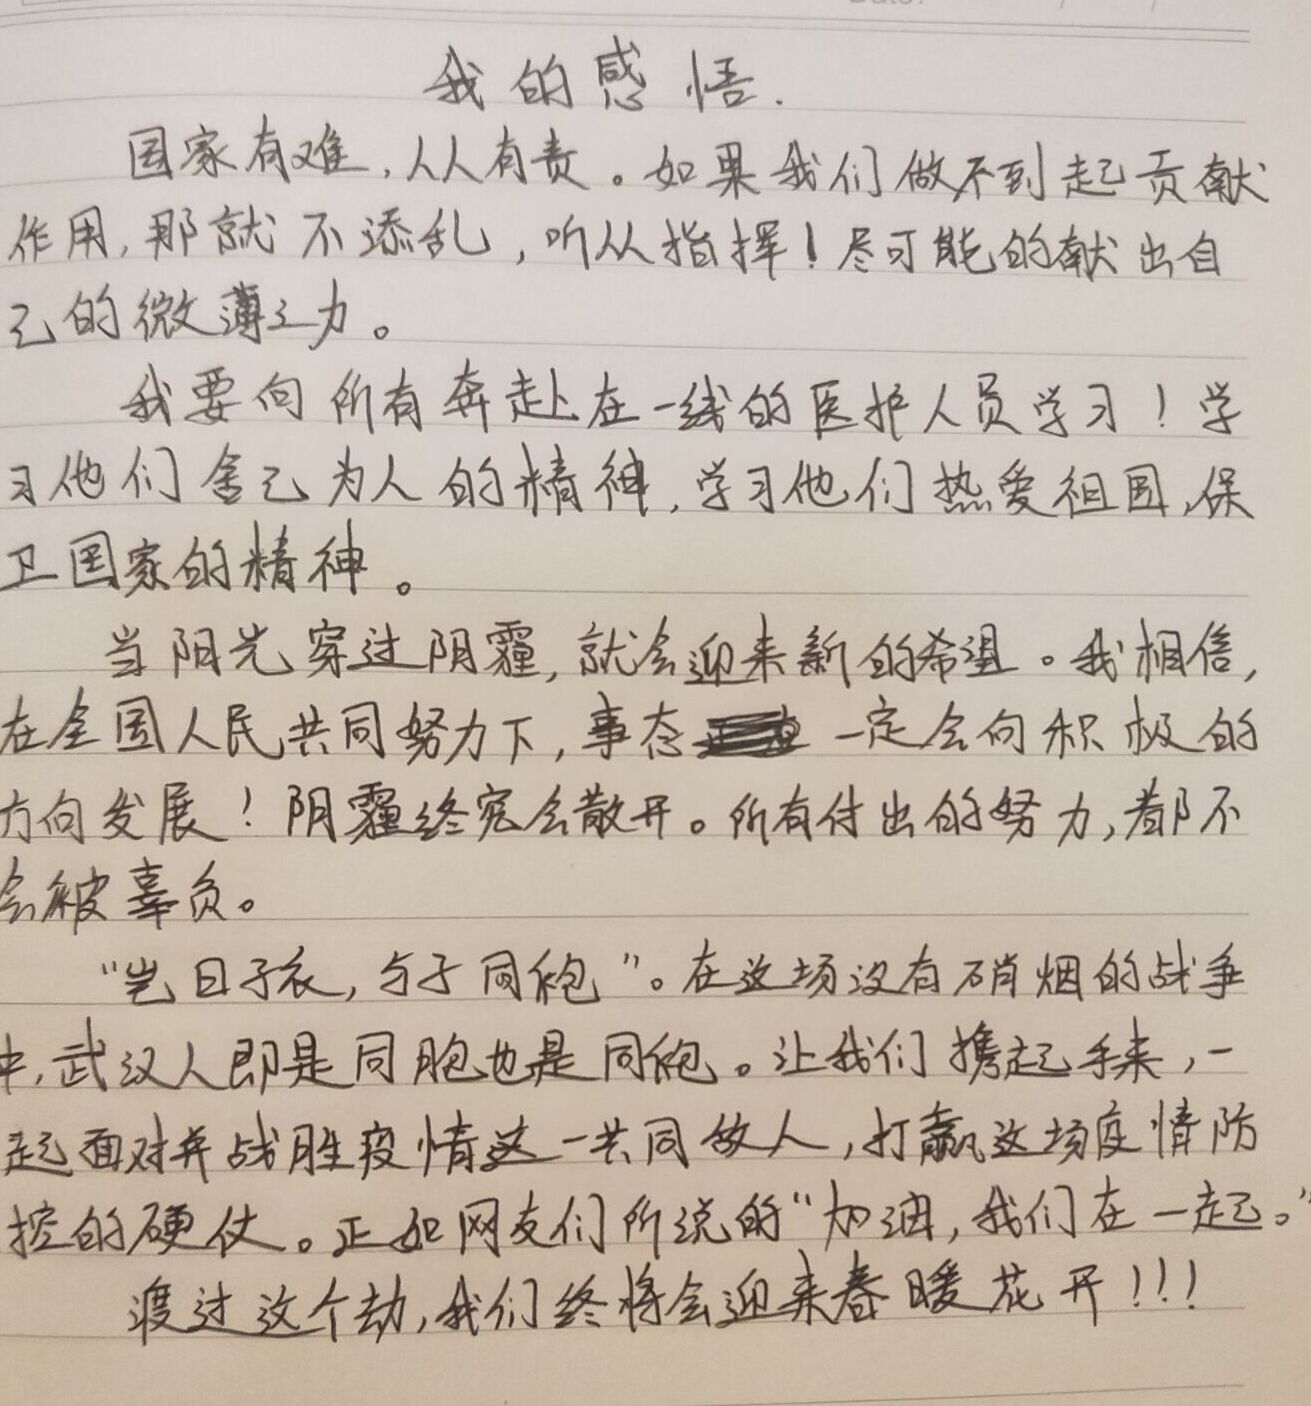 我的感悟.
国家有难，人人有责。如果我们做不到起贡献
作用，那就不添乱，听从指挥！尽可能的献出自
己的微薄之力。
我要向所有奔赴在一线的医护人员学习！学
习他们舍己为人的精神，学习他们热爱祖国，保
卫国家的精神。
当阳光穿过阴霾，就会迎来新的希望。我相信，
在全国人民共同努力下，事态一定会向积极的
方向发展！阴霾终究会散开。所有付出的努力，都不
会被辜负。
“岂曰子衣，与子同袍”。在这场没有硝烟的战争
中，武汉人即是同胞也是同袍。让我们携起手来，一
起面对并战胜疫情这一共同敌人，打赢这场疫情防
控的硬仗。正如网友们所说的“加油，我们在一起。”
渡过这个劫，我们终将会迎来春暖花开！！！